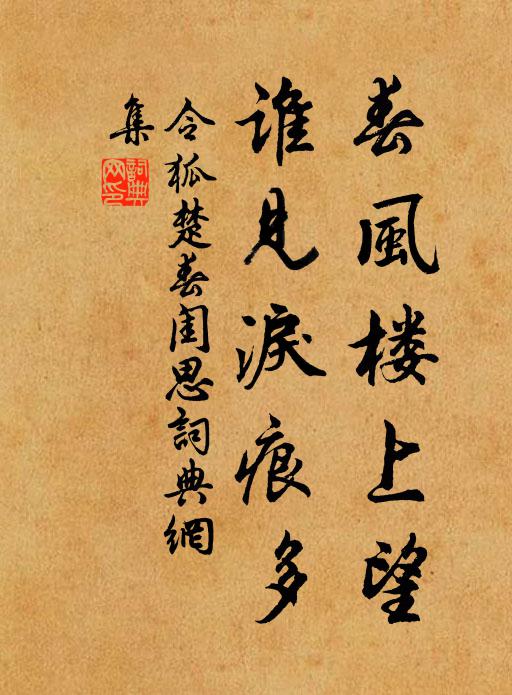 春風楼上望
誰見淚痕多
令狐楚春闺思詞典網
集
詞典
网印